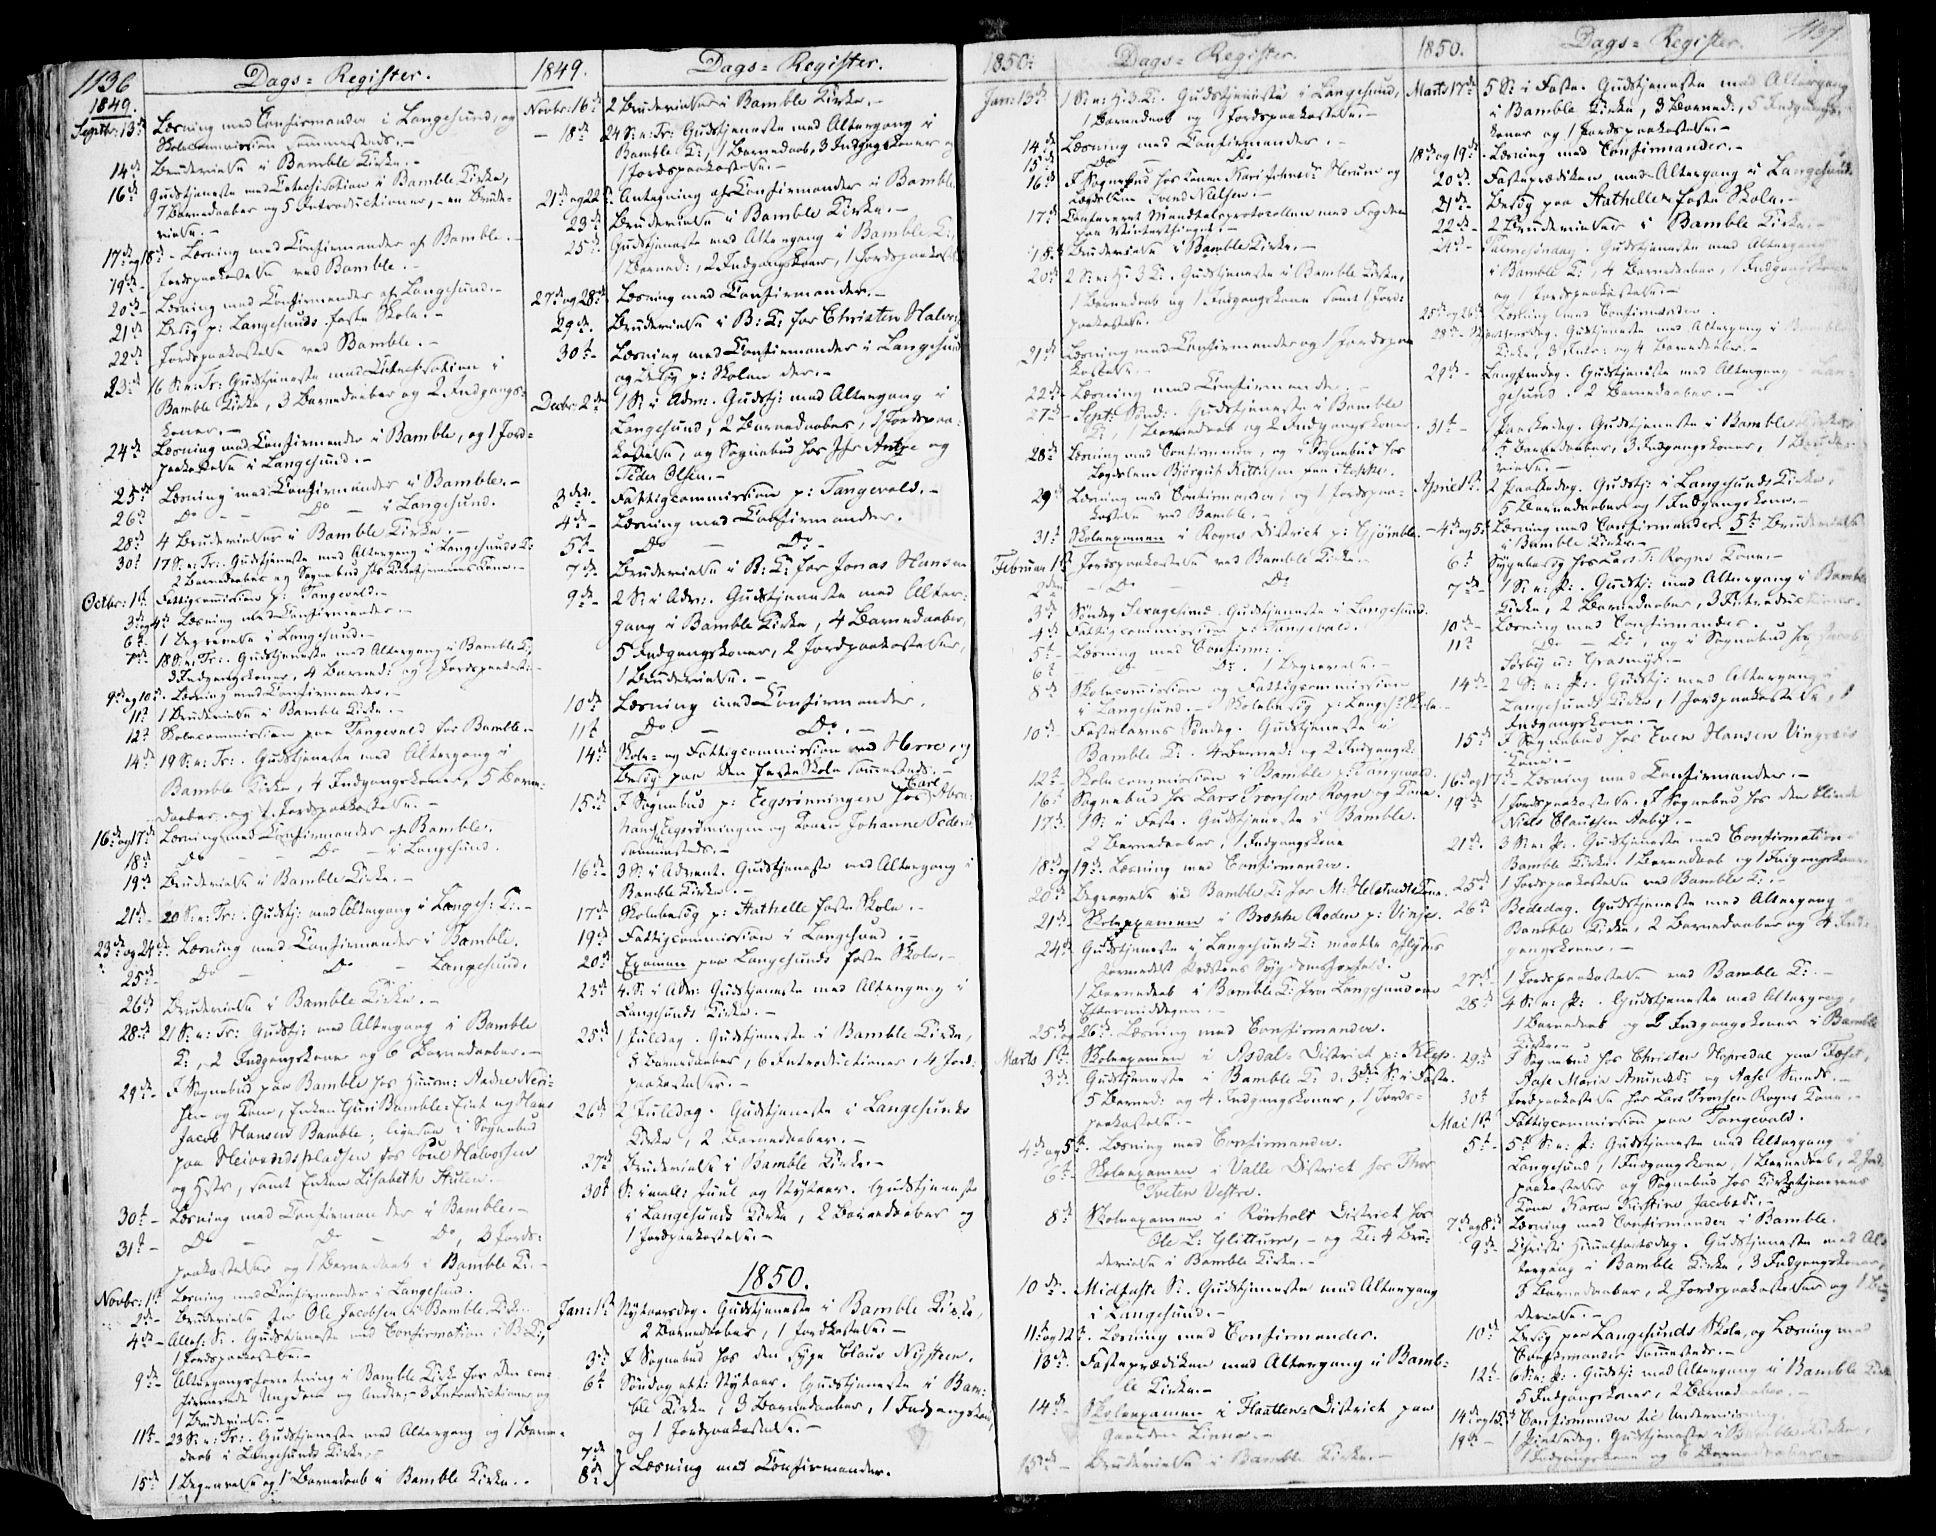 1136
Dags-Register.
1849.
Septbr: 13de Læsning med Confirmander i Langesund, og
Skolecommission sammesteds.-
14de Brudevielse i Bamble Kirke.-
16de Gudstjeneste med Catechisation i Bamble Kirke,
7 Barnedaaber og 5 Introductioner, - en Brude-
vielse.-
17de og 18de - Læsning med Confirmander af Bamble.-
19de - Jordpaakastelse ved Bamble.-
20de - Læsning med Confirmander af Langesund.-
21de Besøg p: Langesunds faste Skole.-
22de Jordpaakastelse ved Bamble.-
23de 16 S: e: Tr: Gudstjeneste med Catechisation i
Bamble Kirke, 3 Barnedaaber og 2 Indgangs-
koner.-
24de Læsning med Confirmander i Bamble, og 1 Jord-
paakastelse i Langesund.-
25de Læsning med Confirmander i Bamble.-
26de Do - - Do - i Langesund.
28de 4 Brudevielser i Bamble Kirke.-
30te 17 S: e: Tr: Gudstjeneste med Altergang i Langesunds K:
2 Barnedaaber og Sognebud hos Kirketjenerens Kone.-
Octbr: 1te Fattigcommission p: Tangevald.-
3de og 4de Læsning med Confirmander.-
6te 1 Begravelse i Langesund.-
7de 18 S: e: Tr: Gudstjeneste med Altergang i Bamble K:,
3 Indgangskoner, 4 Barned: og Jordpaakast:
9de og 10de Læsning med Confirmander.-
11te 1 Brudevielse i Bamble Kirke.-
12te Skolecommission paa Tangevald for Bamble.-
14de 19 S: e: Tr: Gudstjeneste med Altergang i
Bamble Kirke, 4 Indgangskoner, 5 Barne-
daaber og 2 Jordpaakastelser.-
16de og 17de Læsning med Confirmander af Bamble.
18de Do - - Do - i Langesund.
19de Brudevielse i Bamble Kirke.-
21de - 20 S: e: Tr: Gudstj: med Altergang i Langes: K:-
23de og 24de Læsning med Confirmander i Bamble.
25de - Do - Do - Langesund.
26de Brudevielse i Bamble Kirke.-
28de 21 S: e: Tr: Gudstj: med Altergang i Bamble
K:, 2 Indgangskoner og 6 Barnedaaber.-
29de - I Sognebud paa Bamble hos
og Kone, Enken Guri Bamble-Eiet og Hans
Jacob Hansen Bamble; ligesaa i Sognebud
paa Heivandspladsen hos Poul Halvorsen
og Hstr, samt Enken Lisabeth Hulen.
30te - Læsning med Confirmander i Bamble.-
31te - Do - Do - Do, 2 Jord-
paakastelser og 1 Barnedaab i Bamble K:-
Novbr: 1te Læsning med Confirmander i Langesund.
2de - Brudevielse for Ole Jacobsen i Bamble Kirke.-
4de - Alleh: S: Gudstjeneste med Confirmation i B: K:,
1 Jordpaakastelse.-
9de - Altergangsforretning i Bamble Kirke for den con-
firmerede Ungdom og Andre, - 3 Introductioner og
1 Brudevielse.-
11te - 23 S: e: Tr: Gudstjeneste med Altergang og 1 Barne-
daab i Langesunds Kirke.-
15de 1 Begravelse og 1 Barnedaab i Bamble Kirke.-
1849.
Dags-Register.
Novbr: 16de 2 Brudevielser i Bamble Kirke.-
- 18de 24 S: e: Tr: Gudstjeneste med Altergang i
Bamble K:, 1 Barnedaab, 3 Indgangskoner og
1 Jordpaakastelse.-
21de og 22de Antegning af Confirmander i Bamble.
23de Brudevielse i Bamble Kirke.-
25de Gudstjeneste med Altergang i Bamble K:,
1 Barned:, 2 Indgangskoner, 1 Jordpaakast:
27de og 28de Læsning med Confirmander.-
29de Brudevielse i B: K: for Christen Halvors:
30te - Læsning med Confirmander i Langesund
og Besøg p: Skolen der.-
Decbr: 2den 1 S: i Adv: Gudstj: med Altergang i
Langesund, 2 Barnedaaber, 1 Jordpaa-
kastelse, og Sognebud hos og
Peder Olsen.-
3die Fattigcommission p: Tangevald.-
4de - Læsning med Confirmander.
5te - Do - Do -
7de - Brudevielse i B: K: for Jonas Hansen
9de - 2 S: i Adv: Gudstjeneste med Alter-
gang i Bamble Kirke, 4 Barnedaaber,
5 Indgangskoner, 2 Jordpaakastelser,
1 Brudevielse.-
10de Læsning med Confirmander.
11te Do - Do -
14de Skole- og Fattigcommission ved Herre, og
Besøg paa den faste Skole sammesteds.-
15de I Sognebud p: Eegsrønningen hos Carl Abra-
hams Eegsrønningen og Konen Johanne Peders:
sammesteds.-
16de - 3 S: i Advent. Gudstjeneste med Altergang i
Bamble Kirke.-
17de Skolebesøg p: Stathelle faste Skole.-
19de Fattigcommission i Langesund.-
20de Examen paa Langesunds faste Skole.-
23de 4 S: i Adv: Gudstjeneste med Altergang i
Langesunds Kirke.-
25de 1 Juledag. Gudstjeneste i Bamble Kirke,
8 Barnedaaber, 6 Introductioner, 4 Jord-
paakastelser.-
26de 2 Juledag. Gudstjeneste i Langesunds
Kirke, 2 Barnedaaber.-
27de Brudevielse i Bamble Kirke.-
30te S: imell: Juul og Nytaar. Gudstjeneste
i Langesunds Kirke, 2 Barnedaaber og
1 Jordpaakastelse.-
1850.
Jan: 1te Nytaarsdag. Gudstjeneste i Bamble Kirke,
2 Barnedaaber, 1 Jordkastelse.-
3de I Sognebud hos den syge Claus Nysteen.
6te Søndag eft: Nytaar. Gudstjeneste i Bam-
ble Kirke, 3 Barnedaaber, 1 Indgangskone
og 1 Jordpaakastelse.-
7de
8de } Læsning med Confirmander.
1850.
Dags-Register.
Jan: 13de 1 S: e: H. 3 K: Gudstjeneste i Langesund,
1 Barnedaab og 1 Jordpaakastelse.-
14de Læsning med Confirmander.-
15de Do - Do
16de I Sognebud hos Herum og
Svend Nielsen.-
17de Confereret Mandtalsprotocollen med Fogden
paa Vinterthinget.-
18de Brudevielse i Bamble Kirke.-
20de 2 S: e: H. 3 K: Gudstjeneste i Bamble Kirke,
1 Barnedaab og 1 Indgangskone samt 1 Jord-
paakastelse.
21de Læsning med Confirmander og 1 Jordpaa-
kastelse.-
22de - Læsning med Confirmander.-
27de - Sept: Sønd: Gudstjeneste i Bamble
K:, 1 Barnedaab og 2 Indgangskoner.
28de Læsning med Confirmander, og i Sognebud hos
29de Læsning med Confirmander, og 1 Jordpaa-
kastelse ved Bamble.-
31te Skoleexamen i Rogns District p: Gjømble.-
Februar 1te Jordpaakastelse ved Bamble Kirke.-
2den - Do - Do
3de Søndag Sexagesima. Gudstjeneste i Langesund.
4de Fattigcommission p: Tangevald.
5te - Læsning med Confirm:
6te Do. 1 Begravelse.-
8de Skolecommission og Fattigcommission
i Langesund. - Skolebesøg p: Langes: Skole.
10de - Fastelavns Søndag. Gudstjeneste i
Bamble K: 4 Barned: og 2 Indgangsk:
12te - Skolecommission i Bamble p: Tangevald.
16de Sognebud hos Lars Tronsen Rogn og Kone.
17de 1 S: i Faste. Gudstjeneste i Bamble.
2 Barnedaaber, 1 Indgangskone
18de og 19de Læsning med Confirmander.
20de Begravelse ved Bamble K: for M: Helstvedts Kone.
21de - Skoleexamen i Brække Roden p: Vinje.
24de - Gudstjeneste i Langesunds K: maatte aflyses
formedelst Præstens Sygdomsforfald.
1 Barnedaab i Bamble K: fra Langesund om
Eftermiddagen.-
25de og 26de Læsning med Confirmander.
Marts 1te Skoleexamen i Asdal-District p: Kleps.
3de Gudstjeneste i Bamble K: d: 3die S: i Faste.
5 Barned: og 4 Indgangskoner, 1 Jord-
paakastelse.-
4de og 5te Læsning med Confirmander.
6te - Skoleexamen i Valle District hos Thor
Tveten Vestre.
8de Skoleexamen i Rønholt District hos
Ole L: Glittum, - og Kl: 4 Bru-
devielse i Bamble Kirke.-
10de Midfaste S: Gudstjeneste med Altergang
i Langesund.-
11te og 12te Læsning med Confirmander.
13de Fasteprædiken med Altergang i Bamb-
le Kirke.-
14de - Skoleexamen i Flaatten-District paa
Gaarden Linna.-
15de - Brudevielse i Bamble Kirke.-
1850.
Dags-Register.
1137
Marts 17de 5 S: i Faste. Gudstjeneste med Altergang
i Bamble Kirke, 3 Barned:, 5 Indgangs-
koner og 1 Jordpaakastelse.-
18de og 19de Læsning med Confirmander.-
20de Fasteprædiken med Altergang i Langesund.
21de - Besøg paa Stathelle faste Skole.-
22de - 2 Brudevielser i Bamble Kirke.-
24de - Palmesøndag. Gudstjeneste med Altergang
i Bamble K:, 4 Barnedaaber, 1 Indgangskone
og 1 Jordpaakastelse.-
25de og 26de Læsning med Confirmander.
28de - Skjærthorsdag. Gudstjeneste med Altergang i Bamble
Kirke, 3 Intr: og 4 Barnedaaber.-
29de - Langfredag. Gudstjeneste med Altergang i Lan-
gesund. 2 Barnedaaber.-
31te - 1 Paaskedag. Gudstjeneste i Bamble Kirke,
5 Barnedaaber, 3 Indgangskoner, 1 Brude-
vielse.-
April 1te 2 Paaskedag. Gudstj: i Langesunds Kirke,
5 Barnedaaber og 1 Indgangskone.-
- 4de og 5te Læsning med Confirmander. 5te Brudevielse
i Bamble Kirke.-
6te Sygebesøg hos Lars T: Rogns Kone.-
7de - 1 S: e: P: Gudstj: med Altergang i Bamble
Kirke, 2 Barnedaaber, 3 Introductioner.
10de - Læsning med Confirmander.
11te Do - Do, og i Sognebud hos
14de - 2 S: e: P: Gudstj: med Altergang i
Langesunds Kirke, 1 Jordpaakastelse, 1
Indgangskone.-
15de I Sognebud hos Even Hansen
Kone.-
16de og 17de - Læsning med Confirmander.-
19de 1 Jordpaakastelse. I Sognebud hos den blinde
Niels Clausen Aaby.-
21de - 3 S: e: P: Gudstjeneste med Confirmation i
Bamble Kirke. 1 Barnedaab og 1 Indgangskone.
25de 1 Jordpaakastelse ved Bamble K:-
26de Bededag. Gudstjeneste med Altergang i
Bamble Kirke, 2 Barnedaaber og 4 Ind-
gangskoner.-
27de - 1 Jordpaakastelse ved Bamble K:-
28de 4 S: e: P: Gudstjeneste med Altergang,
1 Barnedaab og 2 Indgangskoner i Bamble
Kirke.-
29de I Sognebud hos Christen paa
Aase Marie Amundsd: og Aase
30te Jordpaakastelse for Lars Tronsen Rogns Kone.-
Mai 1te Fattigcommission paa Tangevald.
5te - 5te S: e: P: Gudstjeneste med Altergang i
Langesund, 1 Indgangskone, 1 Barnedaab, 2 Jord-
paakastelser og Sognebud hos Kirketjenerens
Kone Karen Kirstine Jacobsd:-
7de og 8de Læsning med Confirmander i Bamble.
9de - Christi Himmelfartsdag. Gudstjeneste med Al-
tergang i Bamble Kirke, 3 Indgangskoner,
8 Barnedaaber, 2 Jordpaakastelser og 1 Bru-
devielse.-
10de Besøg paa Langesunds Skole, og Læsning med
Confirmander sammesteds.-
12te - 6 S: e: P: Gudstj: med Altergang i Bamble Kirke
5 Indgangskoner, 2 Barnedaaber.-
14de og 15de Confirmander til Underviisning.
19de - 1 Pintsedag. Gudstjeneste i Bamble Kirke,
1 Indgangskone og 6 Barnedaaber.-